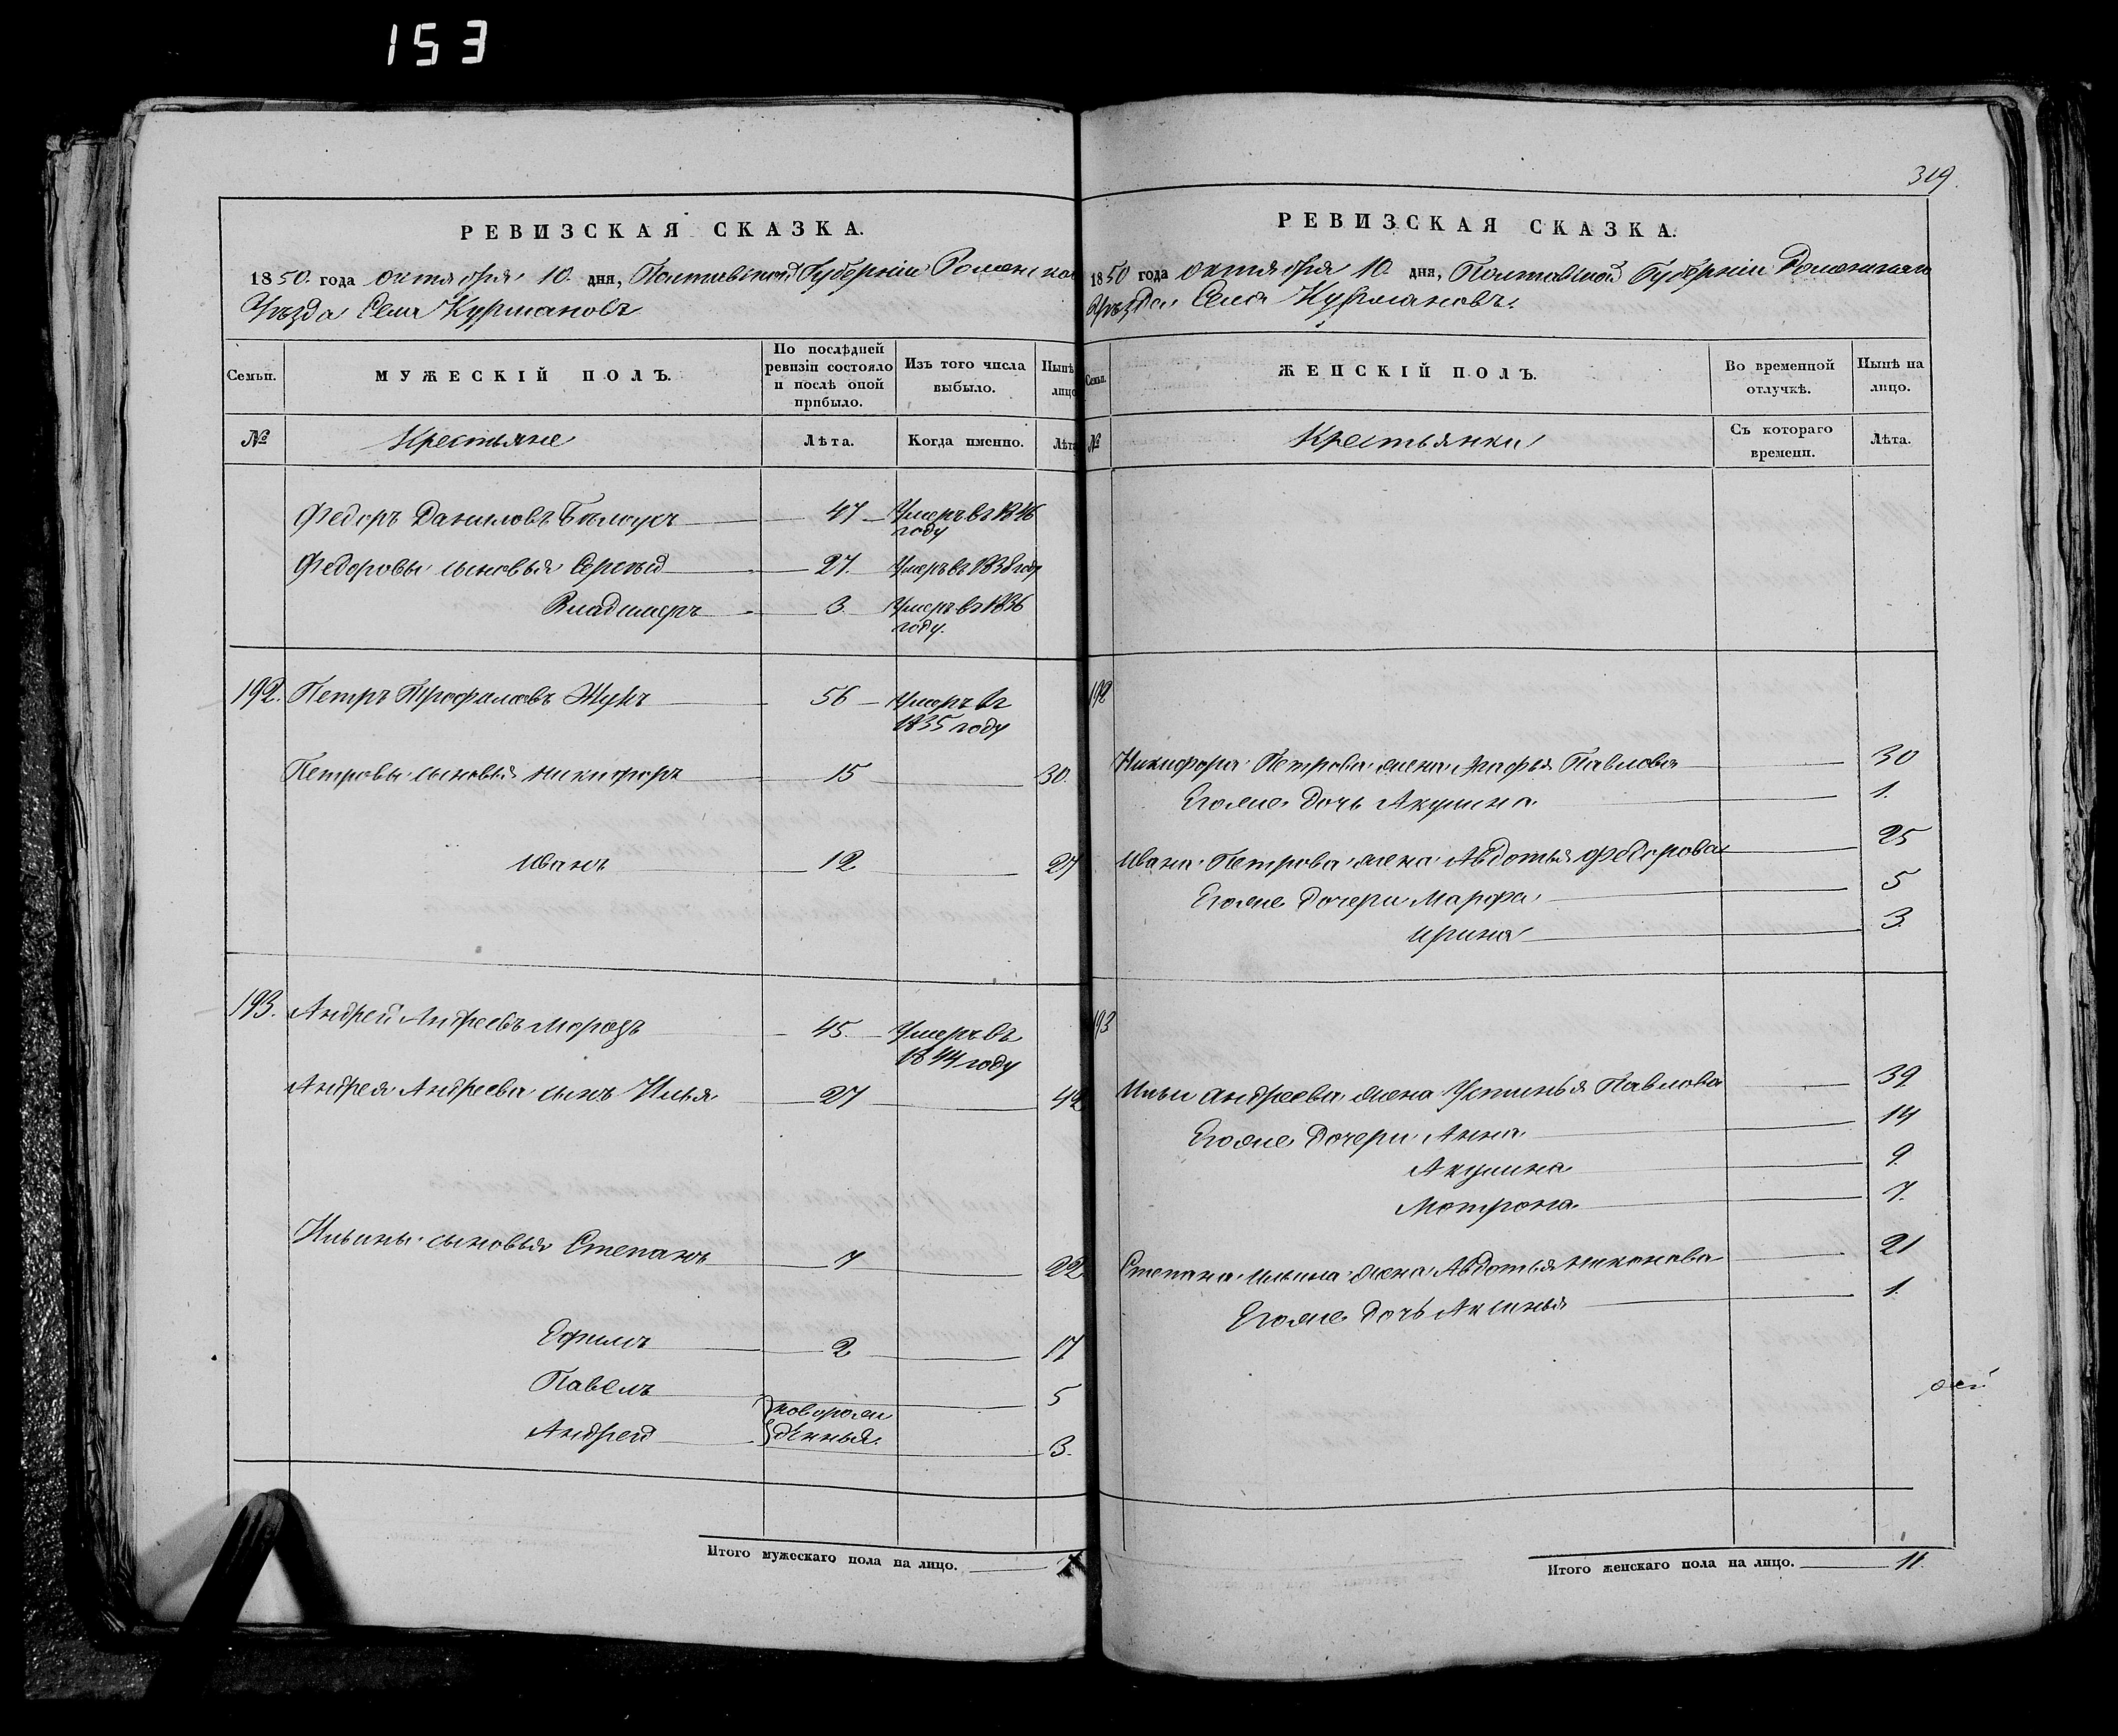 153
РЕВИЗСКАЯ СКАЗКА.
1850. года октября 10. дня, Полтавской Губерніи Роменска
Уѣзда Села Курмановъ
Семьи.
МУЖЕСКІЙ ПОЛЪ.
По послѣдней ревизіи состояло и послѣ оной прибыло.
Изъ того числа выбыло.
Нынѣ лицо
№
Крестьяне
Лѣта.
Когда именно.
Лѣта
Федоръ Даниловъ 47 Умеръ въ 1846 году
Федоровы сыновья Сергѣй 27. Умеръ въ 1838 году
Владимеръ 3. Умеръ въ 1836 году.
192. Петръ Трофимовъ Жукъ 56 Умеръ въ 1835 году
Петровы сыновья Никифоръ 15 30.
Иванъ 12 27
193. Андрей Андреевъ Морозъ 45. Умеръ въ 1844 году
Андрея Андреева сынъ Илья 27 42
Ильины сыновья Степанъ 7 22
Ефимъ 2 17
Павелъ новорожденныя. 5
Андрей 3.
Итого мужескаго пола на лицо. 7
319.
РЕВИЗСКАЯ СКАЗКА.
1850 года октября 10. дня, Полтавской Губерніи Роменскаго
Уѣзда Села Курмановъ.
Семьи.
ЖЕНСКІЙ ПОЛЪ.
Во временной отлучкѣ.
Нынѣ на лицо.
№
Крестьянки
Съ котораго времени.
Лѣта.
192
Никифора Петрова жена Агафья Павлова 30
Егоже дочь Акулина 1.
Ивана Петрова жена Авдотья Федорова 25
Егоже дочери Марфа 5
Ирина 3.
193
Ильи Андреева жена Устинья Павлова 39
Егоже дочери Анна 14
Акулина 9.
Мотрона 7.
Степана Ильина жена Авдотья Никонова 21
Егоже дочь Аксинья 1.
Итого женскаго пола на лицо. 11.